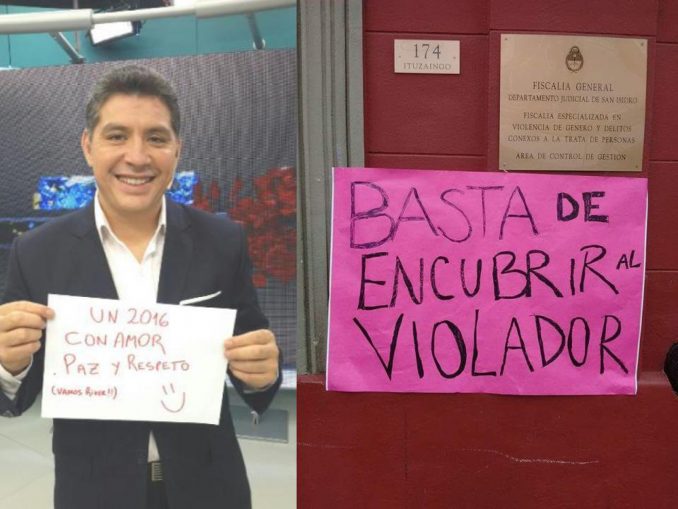 UN 2016
CON AMOR
. PAZ Y RESPETO
(VAMOS RIVER!!)
174
ITUZAINGO
FISCALIA GENERAL
DEPARTAMENTO JUDICIAL DE SAN ISIDRO
FISCALIA ESPECIALIZADA EN
VIOLENCIA DE GENERO Y DELITOS
CONEXOS A LA TRATA DE PERSONAS
AREA DE CONTROL DE GESTIÓN
BASTA DE
ENCUBRIR AL
VIOLADOR